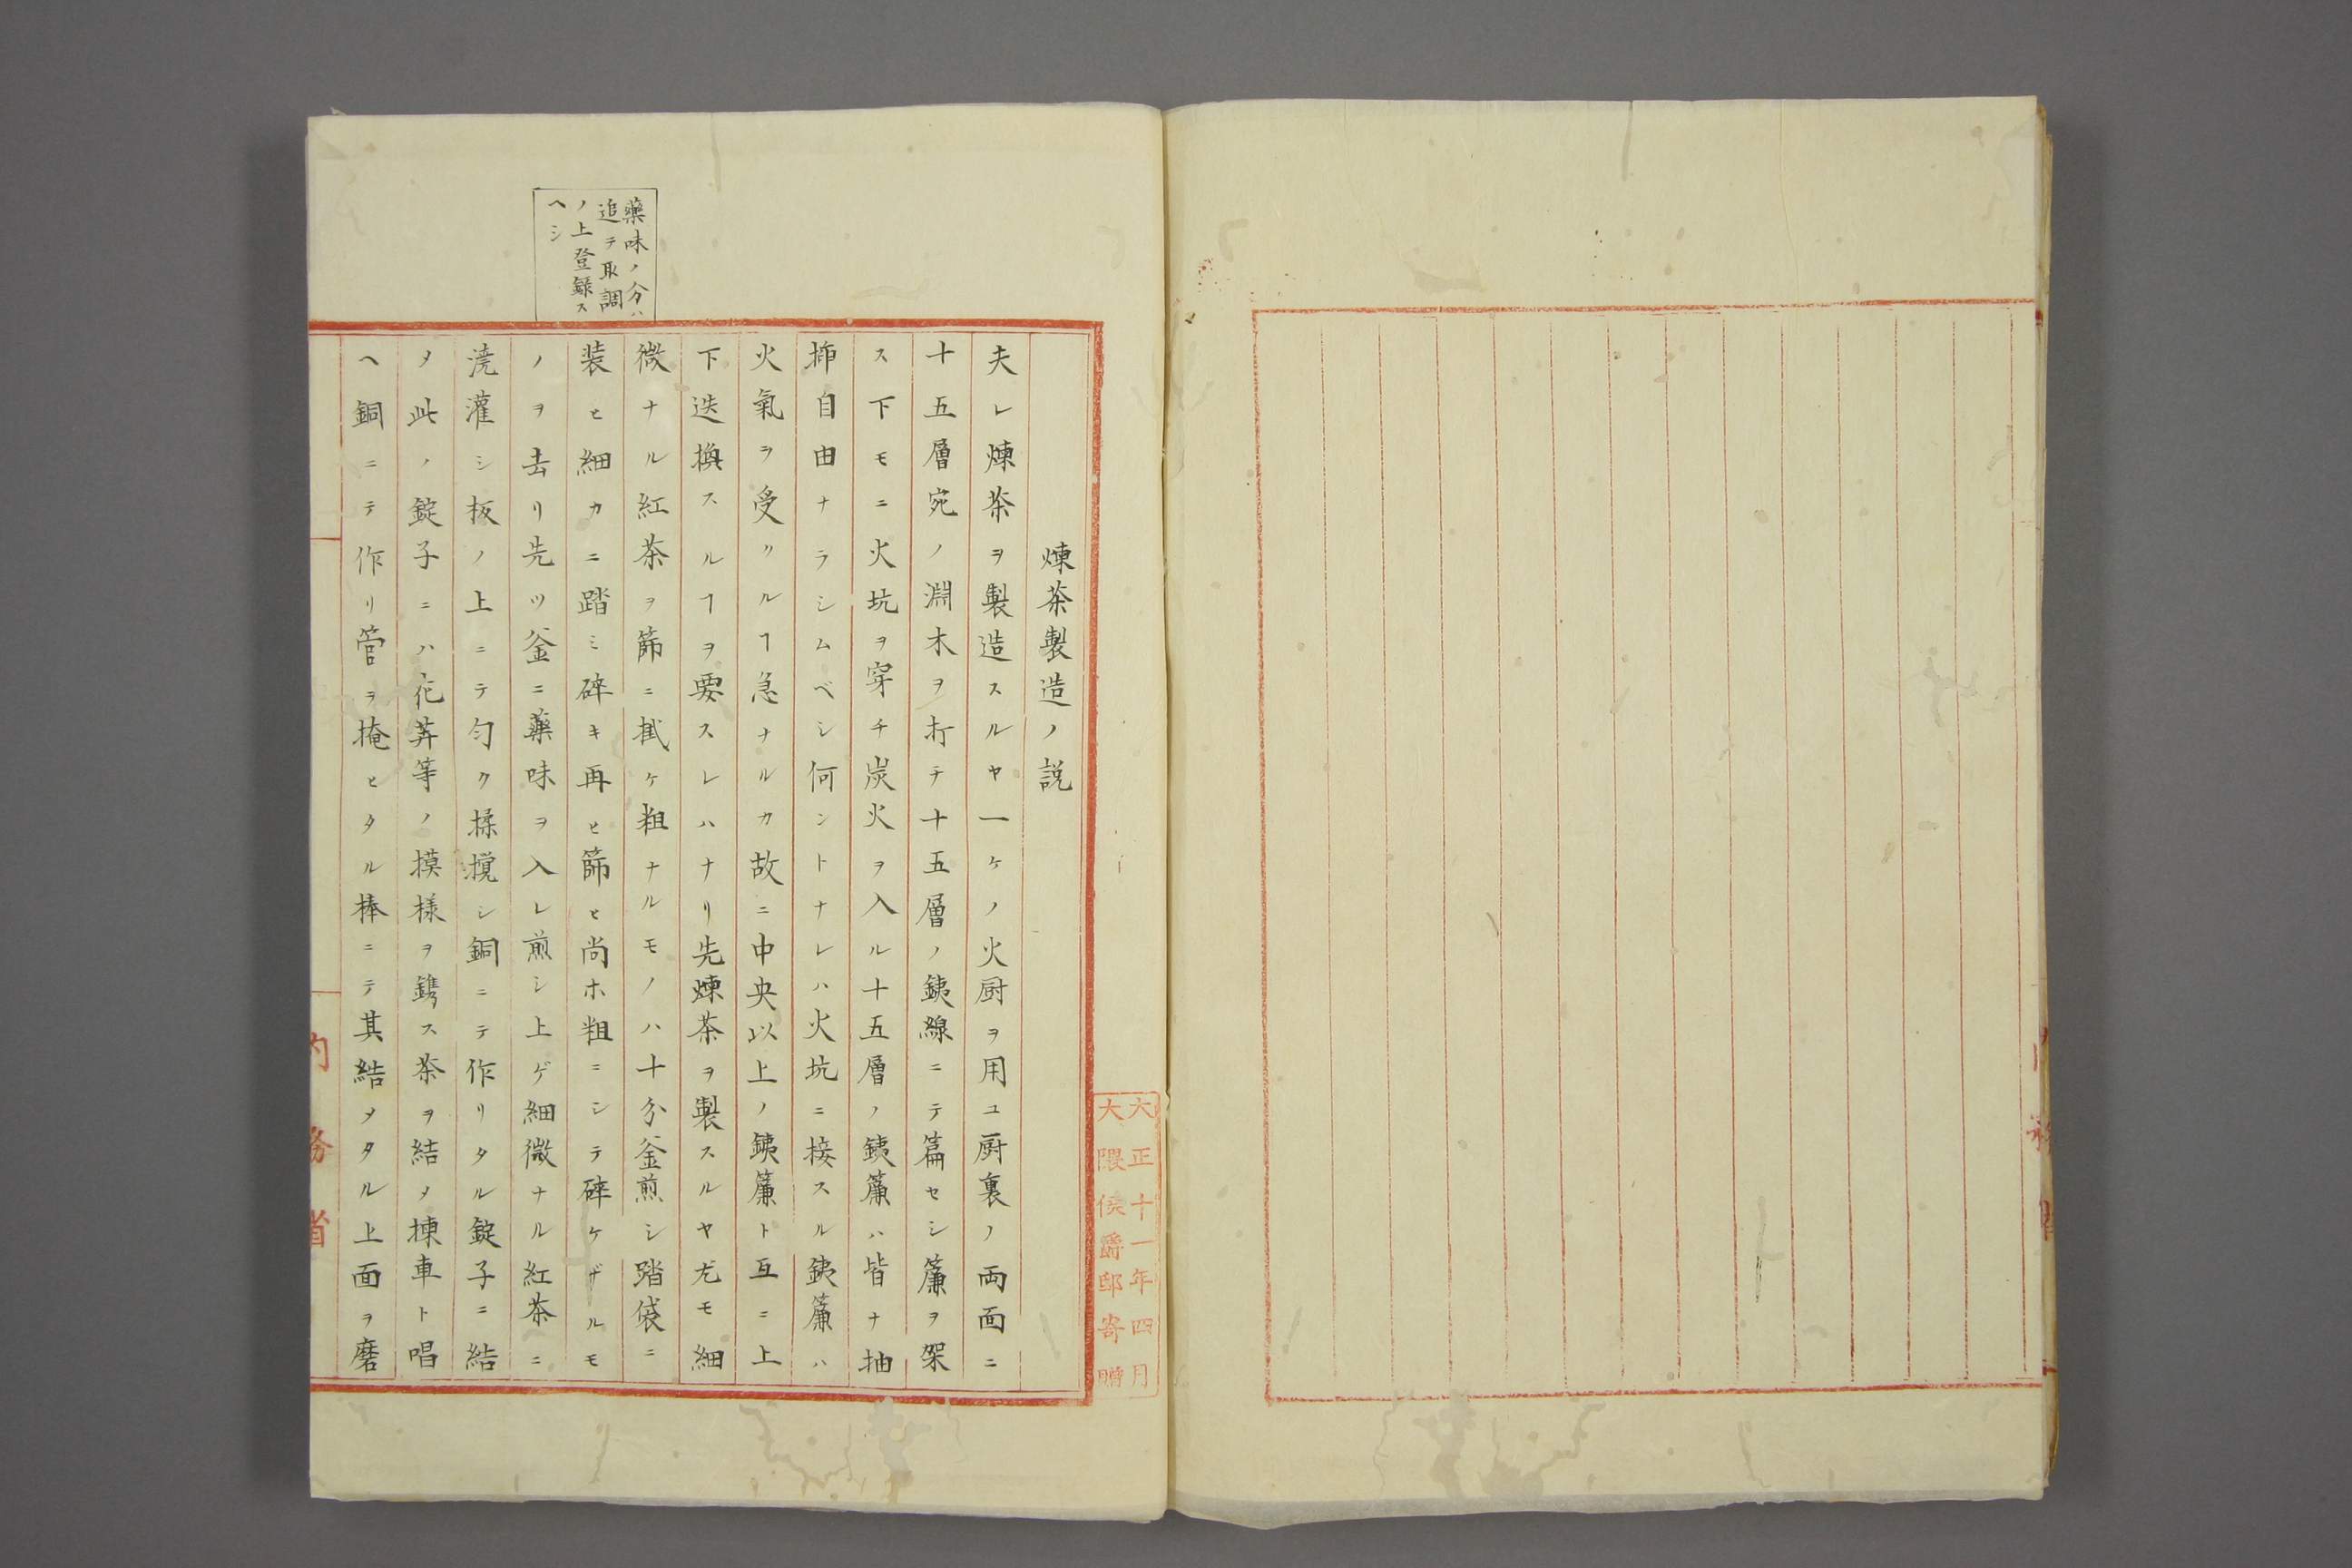 煉茶製造ノ説
夫レ煉茶ヲ製造スルヤ一ケノ火厨ヲ用ユ厨裏ノ両面ニ
十五層宛ノ淵木ヲ打テ十五層ノ銕線ニテ篇セシ簾ヲ架
ス下モニ火坑ヲ穿チ炭火ヲ入ル十五層ノ銕簾ハ皆ナ抽
挿自由ナラシムベシ何ントナレハ火坑ニ接スル銕簾ハ
火氣ヲ受クルヿ急ナルカ故ニ中央以上ノ銕簾ト互ニ上
下迭換スルヿヲ要スレハナリ先煉茶ヲ製スルヤ尤モ細
微ナル紅茶ヲ篩ニ掛ケ粗ナルモノハ十分釜煎シ踏袋ニ
装ヒ細カニ踏ミ碎キ再ヒ篩ヒ尚ホ粗ニシテ碎ケザルモ
ノヲ去リ先ツ釜ニ藥味ヲ入レ煎シ上ゲ細微ナル紅茶ニ
澆灌シ板ノ上ニテ匀ク揉攪シ銅ニテ作リタル錠子ニ結
メ此ノ錠子ニハ花卉等ノ摸様ヲ鐫ス茶ヲ結メ揀車ト唱
ヘ銅ニテ作リ管ヲ掩ヒタル棒ニテ其結メタル上面ヲ磨
藥味ノ分ハ
追テ取調
ノ上登録ス
ヘシ
大正十一年四月
大隈侯爵邸寄贈
内務省